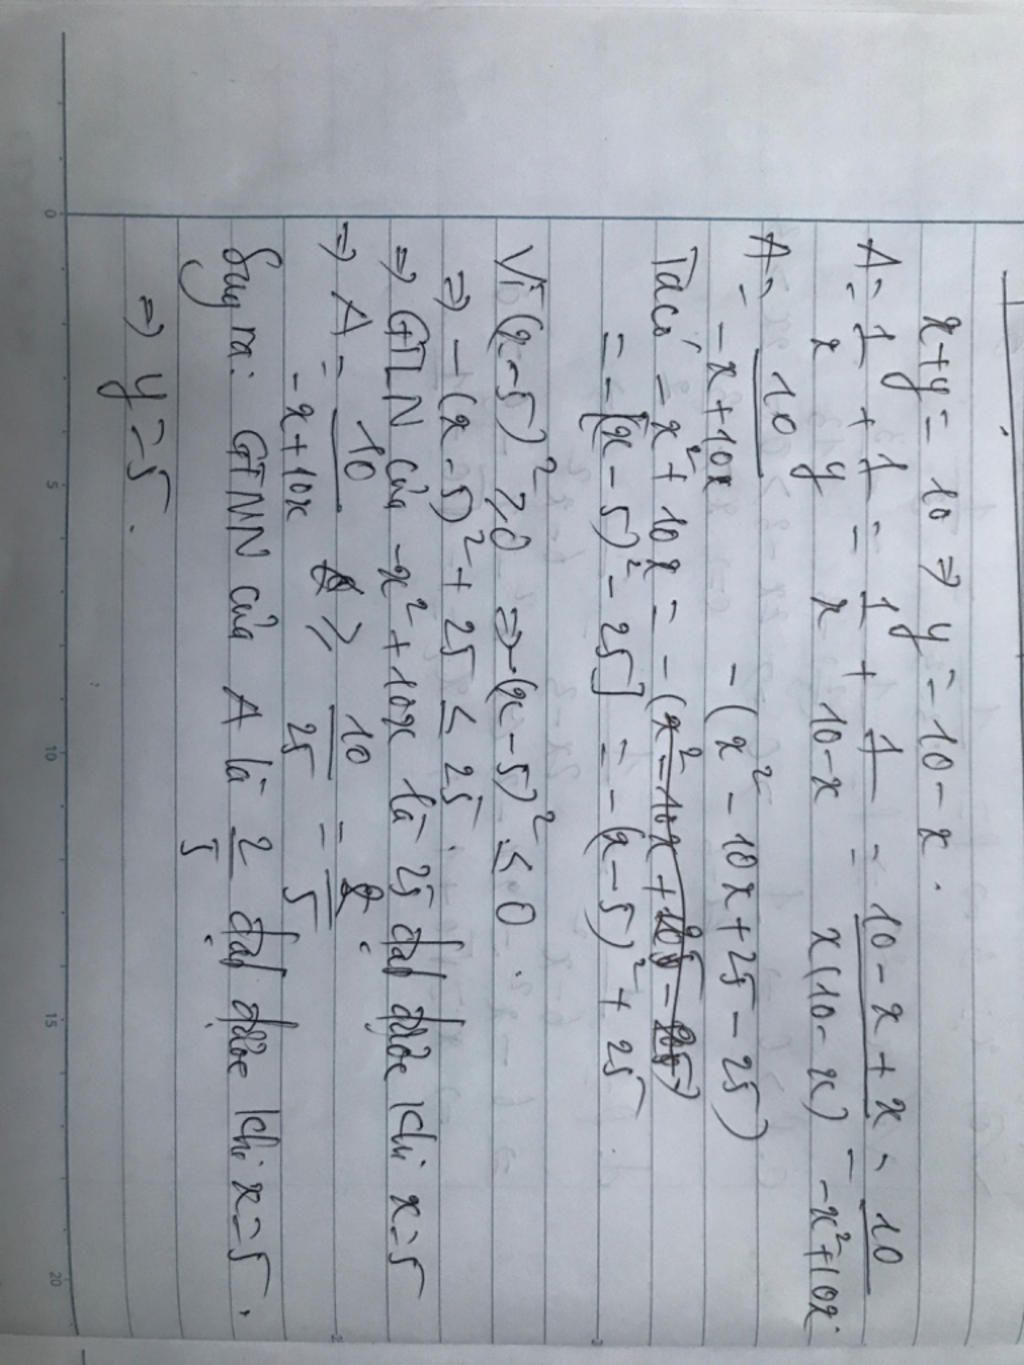 x+y = 10 ⇒ y = 10 - x.
A = 1/x + 1/y = 1/x + 1/(10-x) = (10-x+x)/(x(10-x)) = 10/(-x²+10x)
A = 10/(-x+10x)
-(x² - 10x + 25 - 25)
Ta có -x² + 10x = -(x² - 10x +
= -[(x-5)² - 25] = -(x-5)² + 25
Vì (x-5)² ≥ 0 ⇒ -(x-5)² ≤ 0.
⇒ -(x-5)² + 25 ≤ 25.
⇒ GTLN của -x² + 10x là 25 đạt được khi x=5
⇒ A = 10/(-x+10x) ≥ 10/25 = 2/5.
Suy ra: GTNN của A là 2/5 đạt được khi x=5.
⇒ y=5.
0 5 10 15 20